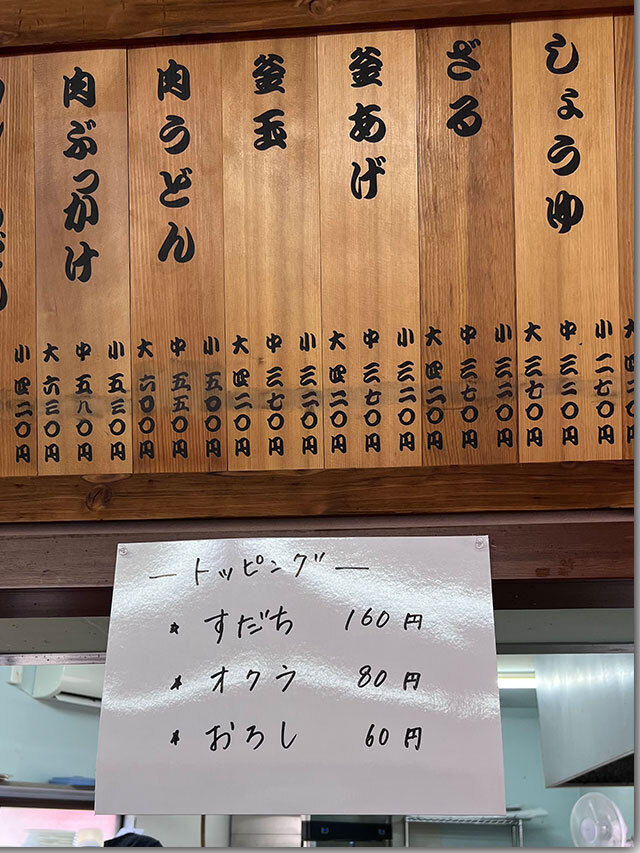 しょうゆ
小 二七〇円
中 三二〇円
大 三七〇円
ざる
小 三二〇円
中 三七〇円
大 四二〇円
釜あげ
小 三二〇円
中 三七〇円
大 四二〇円
釜玉
小 三二〇円
中 三七〇円
大 四二〇円
肉うどん
小 五〇〇円
中 五五〇円
大 六〇〇円
肉ぶっかけ
小 五三〇円
中 五八〇円
大 六三〇円
小 四二〇円
ートッピングー
* すだち 160円
* オクラ 80円
* おろし 60円